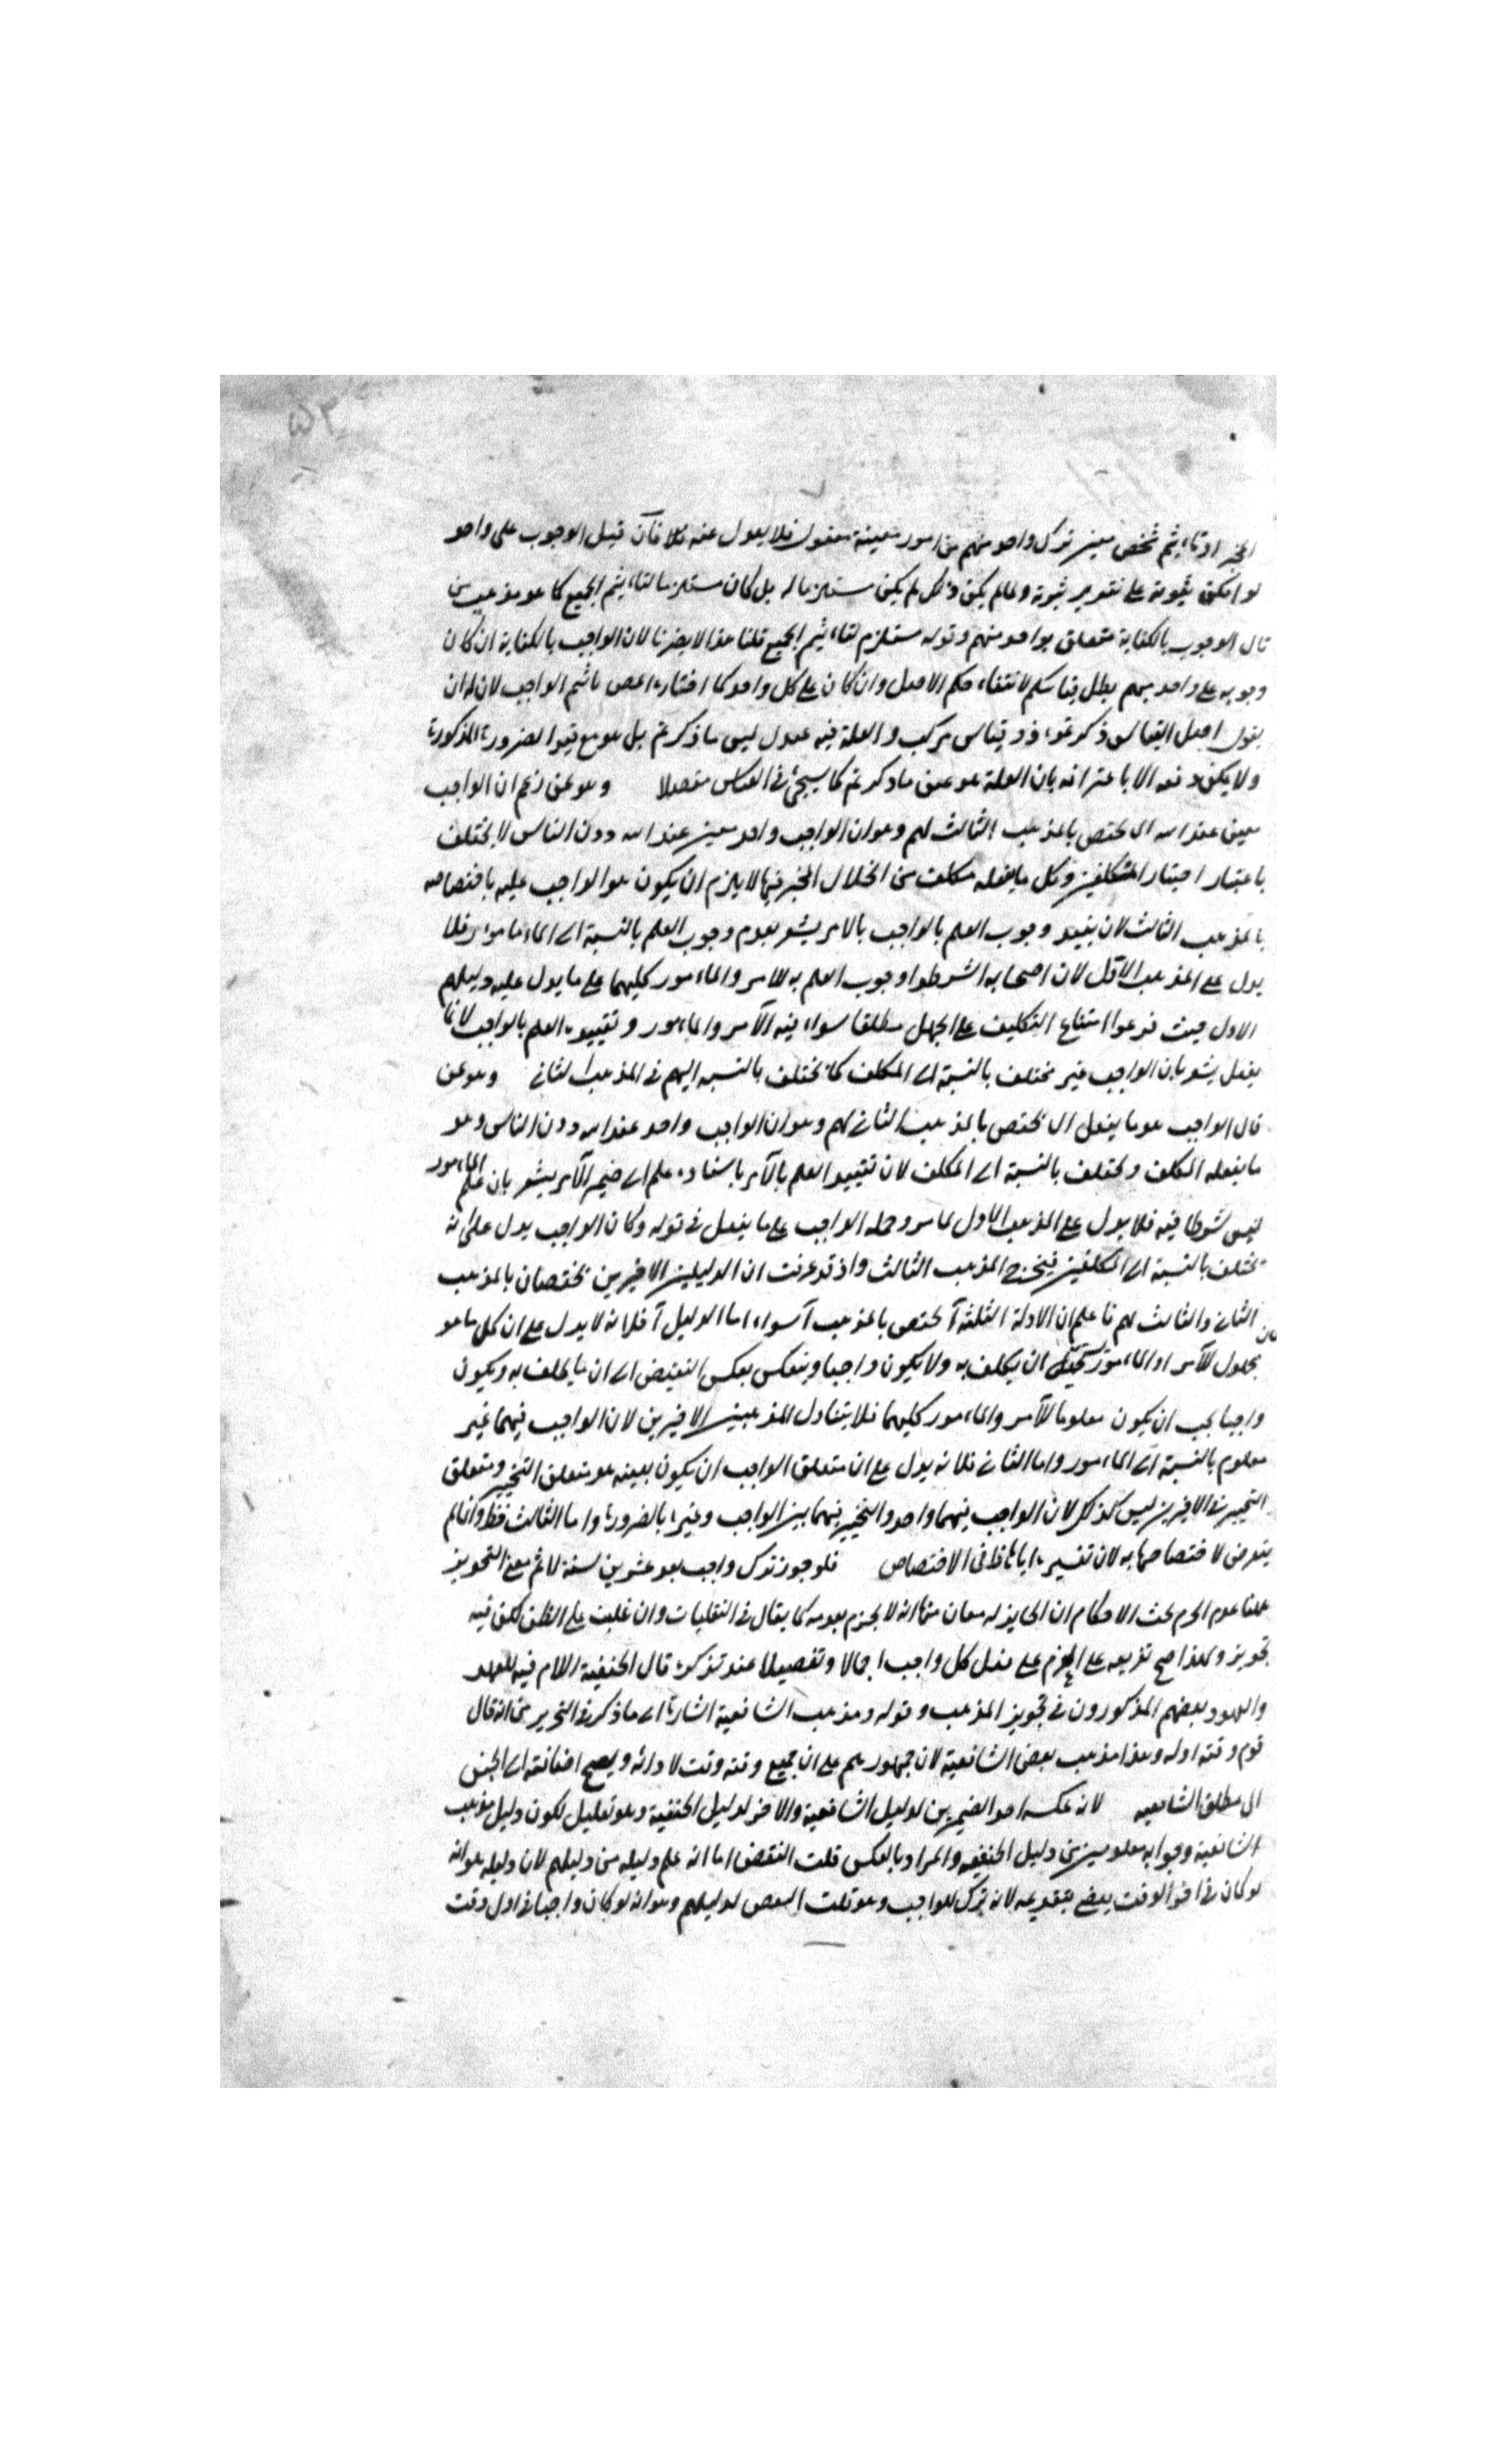 ٥٣
المخير او تاثيم شخص معين بترك واحد مبهم من امور معينة معقول فلا يعدل عنه بلا فان قيل الوجوب على واحد
لو امكن ثبوته على تقدير ثبوته ولما لم يكن ذلك لم يكن مستلزما له بل كان مستلزما لتاثيم الجميع كما هو مذهب من
قال الوجوب بالكفاية متعلق بواحد منهم وقوله مستلزم لتاثيم الجميع قلنا هذا لا يضرنا لان الواجب بالكفاية ان كان
وجوبه على واحد مبهم بطل قياسكم لانتفاء حكم الاصل وان كان على كل واحد كما اختاره المص الواجب لان له ان
يقول اصل القياس ذكرتموه ذو قياس مركب والعلة فيه عدل ليس ما ذكرتم بل هو مع قيد الضرورة المذكورة
ولا يمكن دفعه الا باعترافه بان العلة هو عين ما ذكرتم كما سيجئ في القياس مفصلا وهو عن زعم ان الواجب
معين عند الله الى يختص بالمذهب الثالث لهم وهو ان الواجب واحد معين عند الله دون الناس لا يختلف
باعتبار اختيار المكلفين وكل ما يفعله مكلف من الخلال المخير فيها لا يلزم ان يكون هو الواجب عليه باختصاصه
بالمذهب الثالث لان تقييد وجوب العلم بالواجب بالامر يشعر بعدم وجوب العلم بالنسبة الى الماءمور فلا
يدل على المذهب الاول لان اصحابه اشترطوا وجوب العلم به للامر والماءمور كليهما على ما يدل عليه دليلهم
الاول حيث فرعوا امتناع التكليف على الجهل مطلقا سواء فيه الآمر والماءمور وتقييده العلم بالواجب لا بما
يفعل يشعر بان الواجب غير مختلف بالنسبة الى المكلف كما يختلف بالنسبة اليهم في المذهب الثاني وهو عن
قال الواجب هو ما يفعل الى يختص بالمذهب الثاني لهم وهو ان الواجب واحد عند الله دون الناس وهو
ما يفعله المكلف ويختلف بالنسبة الى المكلف لان تقييد العلم بالآمر باسناد علم الى ضمير الآمر يشعر بان علم الماءمور
ليس شرطا فيه فلا يدل على المذهب الاول لما مر وحمله الواجب على ما يفعل في قوله وكان الواجب يدل على انه
يختلف بالنسبة الى المكلفين فيخرج المذهب الثالث واذ قد عرفت ان الدليلين الاخيرين يختصان بالمذهب
الثاني والثالث لهم فاعلم ان الادلة الثلثة آ يختص بالمذهب آ سواء اما الدليل آ فلانه لا يدل على ان كل ما هو
مجهول للآمر او الماءمور يستحيل ان يكلف به ولا يكون واجبا وينعكس بعكس النقيض الى ان ما يكلف به ويكون
واجبا يجب ان يكون معلوما للآمر والماءمور كليهما فلا يتناول المذهبين الاخيرين لان الواجب فيهما غير
معلوم بالنسبة الى الماءمور واما الثاني فلانه يدل على ان متعلق الواجب ان يكون بعينه هو متعلق التخيير ومتعلق
التخيير في الاخيرين ليس كذلك لان الواجب فيهما واحد والتخيير فيهما بين الواجب وغيره بالضرورة واما الثالث فظ وانما لم
يتعرض لاختصاصها به لان تفسيره اياها كاف في الاختصاص فلو جوز ترك واجب بعد عشرين سنة لاثم مع التجويز
هلنا عدم الجزم بحث الاحكام ان الجايز له معان منها انه لا يجزم بعدمه كما يقال في النقليات وان غلبت على الظن لكن فيه
تجويز ولهذا صح تفريعه على الجزم على فعل كل واجب اجمالا وتفصيلا عند تذكره قال الحنفية اللام فيه للعهد
والمعهود بعضهم المذكورون في تجويز المذهب وقوله ومذهب الشافعية اشارة الى ما ذكر في التحرير من انه قال
قوم وقته اوله وهذا مذهب بعض الشافعية لان جمهورهم على ان جميع وقته وقت لادائه ويصح اضافته الى الجنس
الى مطلق الشافعيه لانه عكسه احد الضميرين لدليل الشافعية والاخر لدليل الحنفية وهو تعليل لكون دليل مذهب
الشافعية وجوابه معلومين من دليل الحنفيه والمراد بالعكس قلت النقض اما انه علم دليله من دليلهم لان دليله هو انه
لو كان في اخر الوقت يعصي بتقديمه لانه ترك للواجب وهو قلت البعض لدليلهم وهو انه لو كان واجبا في اول وقت